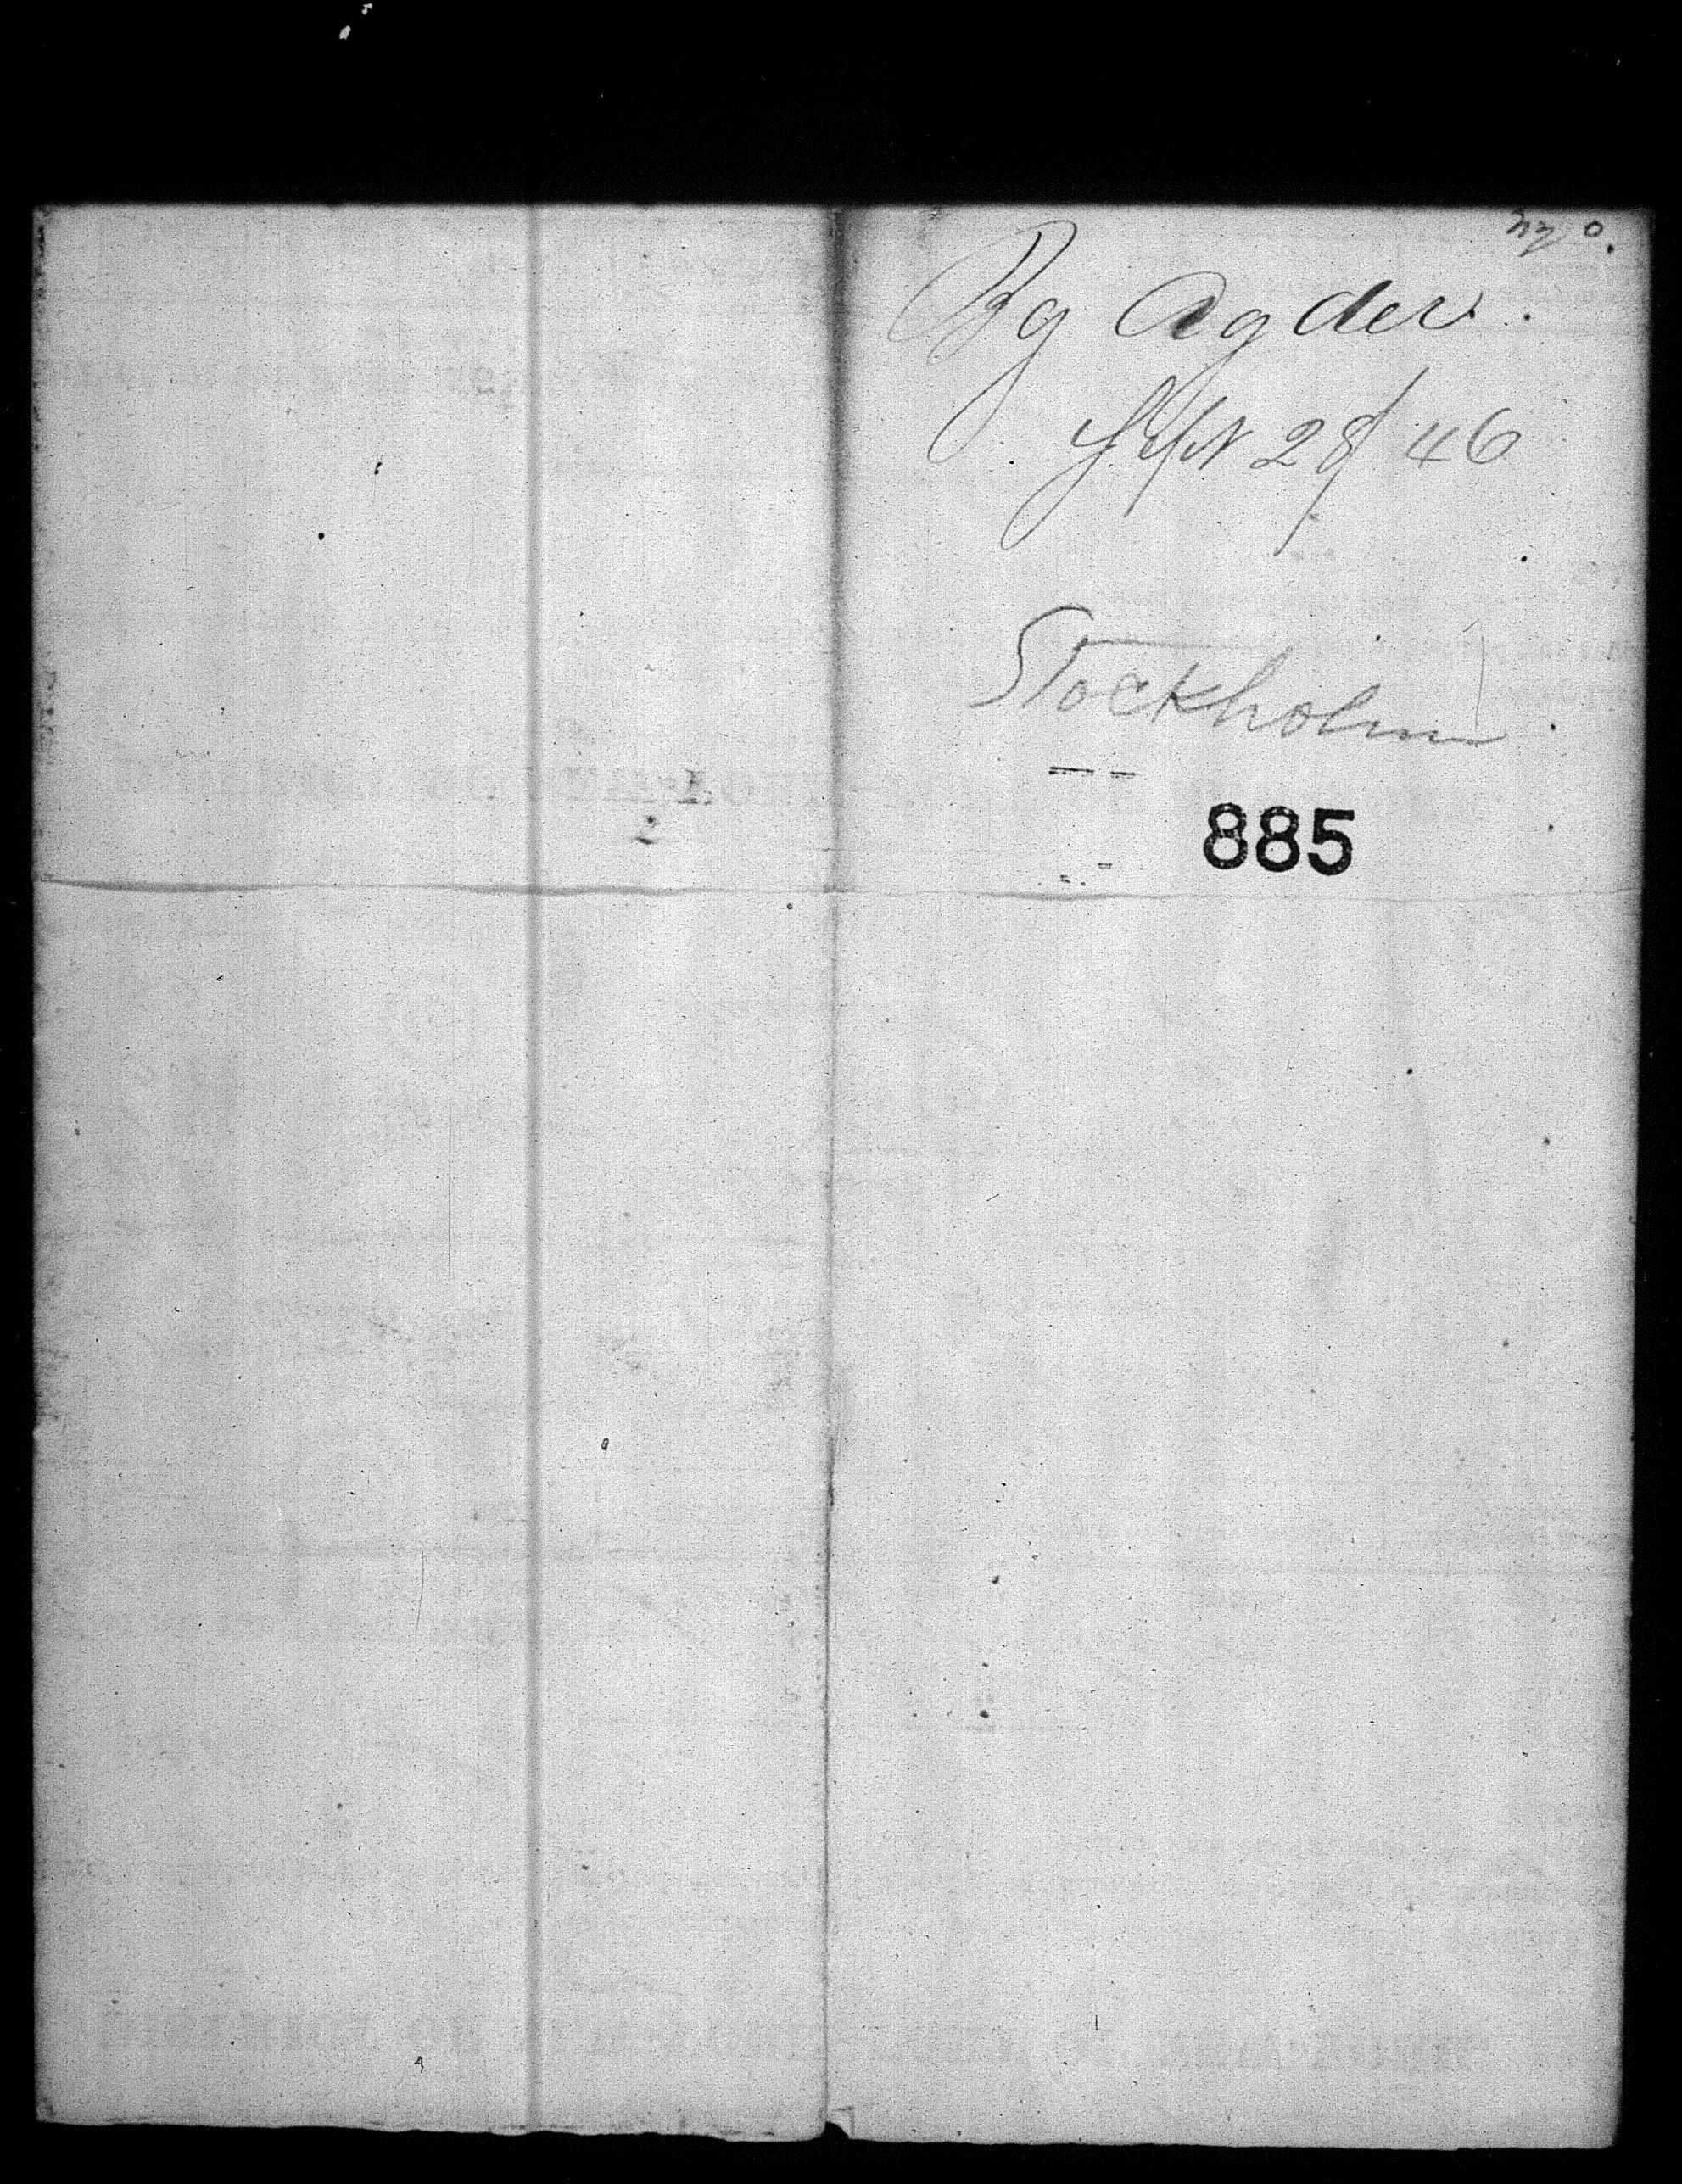 Bg Agder
Sept 28/46
Stockholm
885